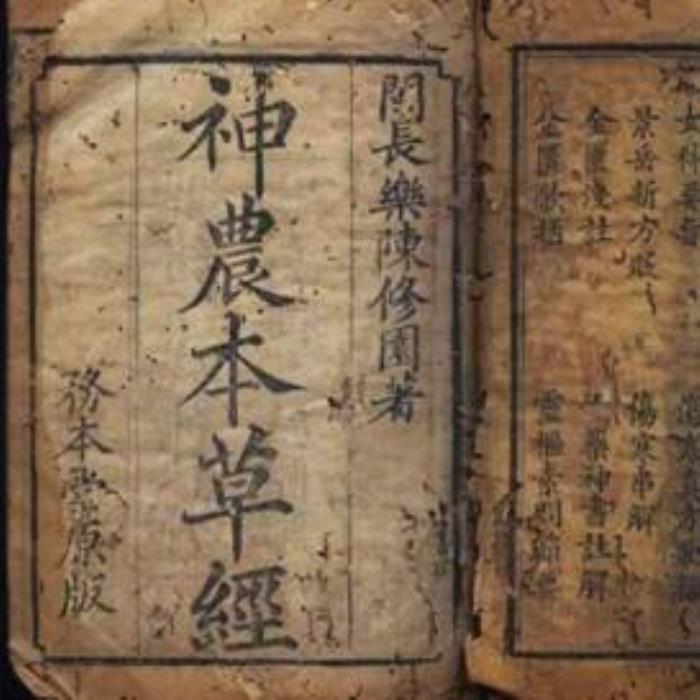 景岳新方砭 傷寒串解
金匱淺註 藥神書註解
金匱歌括 靈樞素問節要
閩長樂陳修園著
神農本草經
務本堂原版